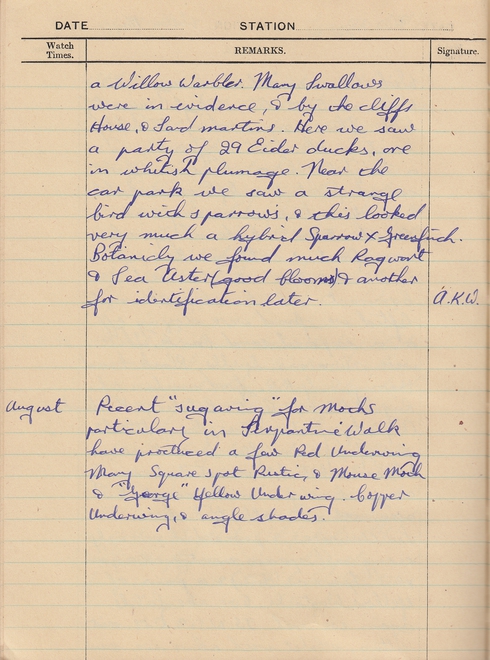 DATE STATION
Watch Times. REMARKS. Signature.
a Willow Warbler. Many Swallows
were in evidence, & by the cliffs
House, & Sand martins. Here we saw
a party of 29 Eider ducks, one
in whitish plumage. Near the
car park we saw a strange
bird with sparrows, & this looked
very much a hybrid Sparrow X Greenfinch.
Botanicly we found much Ragwort
& Sea Aster (good blooms) & another
for identification later. A.K.W.
August Recent "sugaring" for moths
particulary in Serpantine Walk
have produced a few Red Underwing
Many Square spot Rustic, & Mouse Moth
& Yellow Underwing. Copper
Underwing, & angle shades.